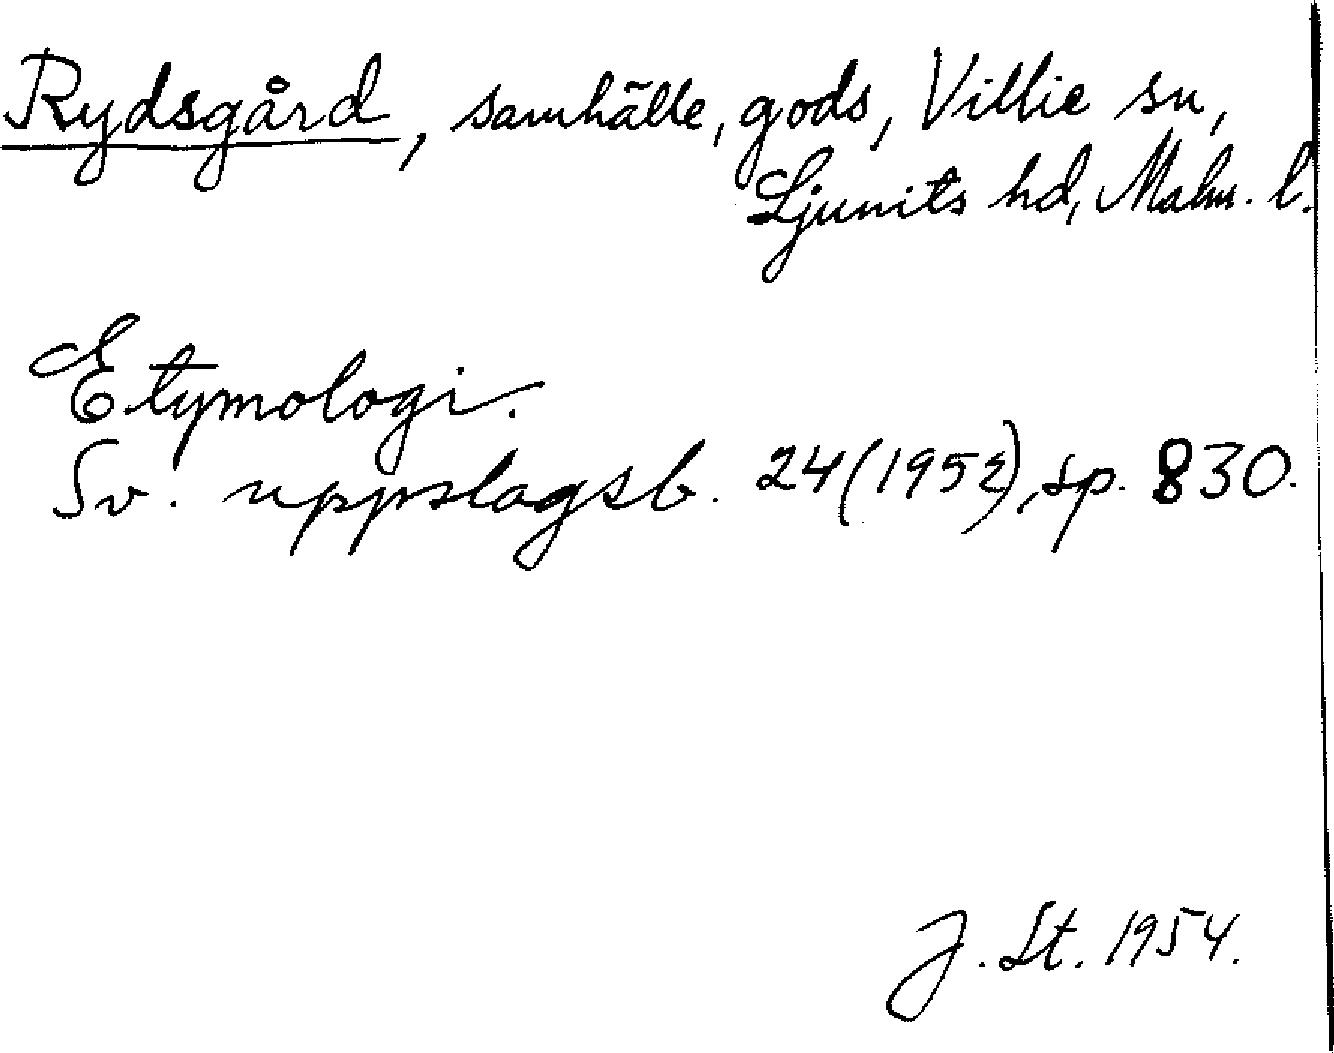 Rydsgård, samhälle, gods, Villie sn,
Ljunits hd, Malm. l.
Etymologi.
Sv. uppslagsb. 24 (1952), sp. 830.
J. St. 1954.